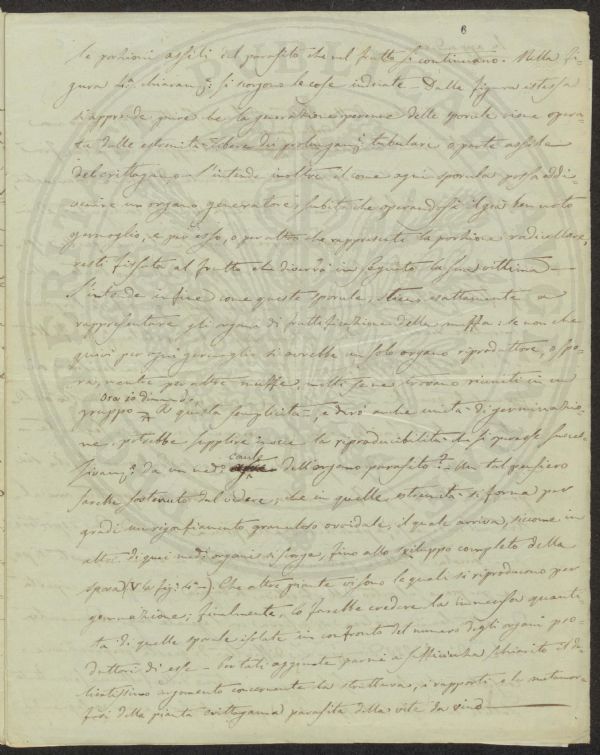 6
le porzioni assili del parasito che nel frutto si continuano. Nella fi-
gura 4a chiaram.e si scorgono le cose indicate - Dalla figura istessa
si apprende pure che la generazione perenne delle sporule viene opera-
ta dalle estremità libere dei prolungam.i tubulari o parte assile
del crittogamo. S'intende inoltre il come ogni sporula possa addi-
venire un organo generatore, subito che operandosi il già ben noto
germoglio, e per esso, o per altro che rappresenti la porzione radicellare,
resti fissata al frutto che diverrà in seguito la sua vittima -
S'intende infine come queste sporule, stiano esattamente a
rappresentare gli organi di fruttificazione della muffa: se non che
quasi per ogni germoglio si avrebbe un solo organo riproduttore, o spo-
ra, mentre per altre muffe, molti se ne trovano riuniti in un
gruppo - Ora io dimando, A questa semplicità, e dirò anche unità di germinazio-
ne, potrebbe supplire invece la riproducibilità che si avesse succes-
sivam.e da un med.o capo dell'organo parasito? - Un tal pensiero
sarebbe sostenuto dal vedere, che in quelle estremità si forma per
gradi un rigonfiamento granuloso ovoidale, il quale arriva, siccome in
altri di quei med.i organi si scorge, fino allo sviluppo completo della
spora (V. la fig. 4a). Che altre piante vi sono le quali si riproducono per
gemmazione; finalmente, lo farebbe credere la immensa quanti-
tà di quelle sporule isolate in confronto del numero degli organi pro-
duttori di esse - Portati aggiunte parmi a sufficienza schiarito il de-
licatissimo argomento concernente la struttura, i rapporti e le metamor-
fosi della pianta crittogama parasita della vite da vino -